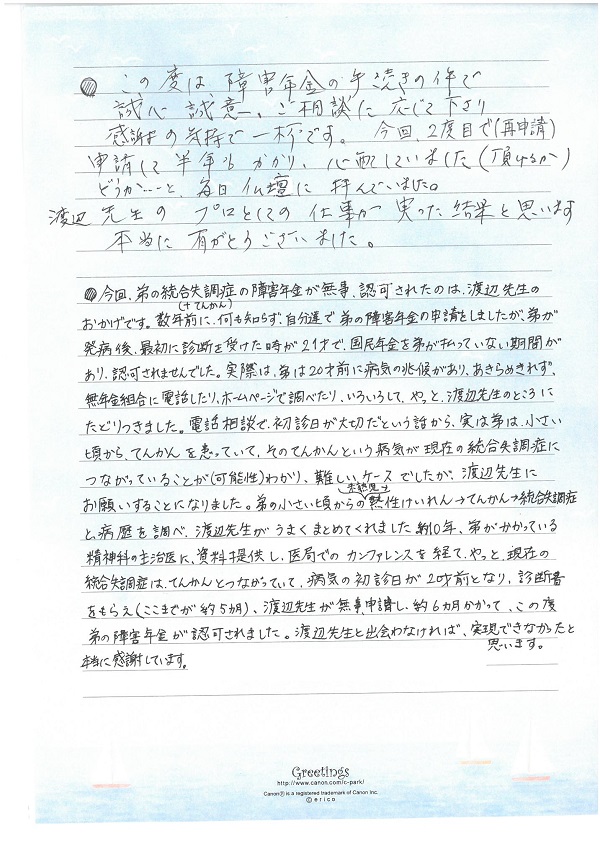 ◎この度は、障害年金の手続きの件で
誠心誠意、ご相談に応じて下さり
感謝の気持で一杯です。今回、2度目で(再申請)
申請して半年もかかり、心配していました(頂けるか)
どうか……と、毎日仏壇に拝んでいました。
渡辺先生のプロとしての仕事が実った結果と思います
本当に有がとうございました。
◎今回、弟の統合失調症の障害年金が無事、認可されたのは、渡辺先生の
(+てんかん)
おかげです。数年前に、何も知らず、自分達で弟の障害年金の申請をしましたが、弟が
発病後、最初に診断を受けた時が21才で、国民年金を弟が払っていない期間が
あり、認可されませんでした。実際は、弟は20才前に病気の兆候があり、あきらめきれず、
無年金組合に電話したり、ホームページで調べたり、いろいろして、やっと、渡辺先生のところに
たどりつきました。電話相談で、初診日が大切だという話から、実は弟は、小さい
頃から、てんかんを患っていて、そのてんかんという病気が現在の統合失調症に
つながっていることが(可能性)わかり、難しいケースでしたが、渡辺先生に
お願いすることになりました。弟の小さい頃からの熱性けいれん→てんかん→統合失調症
と、病歴を調べ、渡辺先生がうまくまとめてくれました。約10年、弟がかかっている
精神科の主治医に、資料提供し、医局でのカンファレンスを経て、やっと、現在の
統合失調症は、てんかんとつながっていて、病気の初診日が20才前となり、診断書
をもらえ(ここまでが約5カ月)、渡辺先生が無事申請し、約6カ月かかって、この度
弟の障害年金が認可されました。渡辺先生と出会わなければ、実現できなかったと
思います。
本当に感謝しています。
Greetings
http://www.canon.com/c-park/
Canon® is a registered trademark of Canon Inc.
© erico